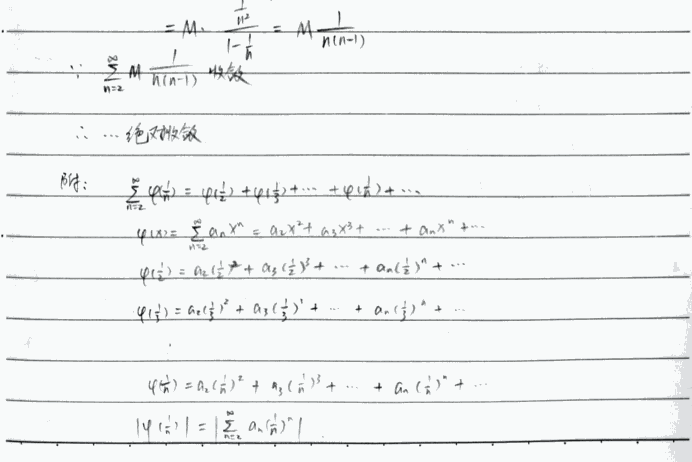 = M · \frac{\frac{1}{n^2}}{1-\frac{1}{n}} = M \frac{1}{n(n-1)}
∵ \sum_{n=2}^{∞} M \frac{1}{n(n-1)} 收敛
∴ … 绝对收敛
附: \sum_{n=2}^{∞} φ(\frac{1}{n}) = φ(\frac{1}{2}) + φ(\frac{1}{3}) + … + φ(\frac{1}{n}) + …
φ(x) = \sum_{n=2}^{∞} a_n x^n = a_2x^2 + a_3x^3 + … + a_nx^n + …
φ(\frac{1}{2}) = a_2(\frac{1}{2})^2 + a_3(\frac{1}{2})^3 + … + a_n(\frac{1}{2})^n + …
φ(\frac{1}{3}) = a_2(\frac{1}{3})^2 + a_3(\frac{1}{3})^3 + … + a_n(\frac{1}{3})^n + …
φ(\frac{1}{n}) = a_2(\frac{1}{n})^2 + a_3(\frac{1}{n})^3 + … + a_n(\frac{1}{n})^n + …
|φ(\frac{1}{n})| = |\sum_{n=2}^{∞} a_n(\frac{1}{n})^n|